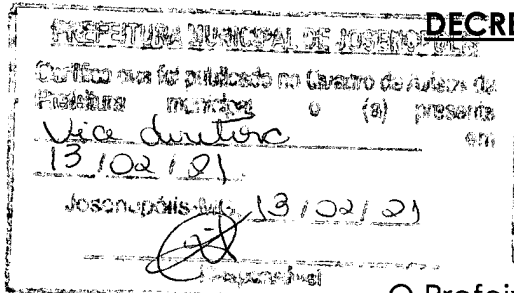 DECRE
PREFEITURA MUNICIPAL DE JOSENÓPOLIS
Certifico que foi publicado no Quadro de Avisos da
Prefeitura municipal o (a) presente
Vice diretora em
13/02/21
Josenópolis-MG, 13/02/21
Responsável
O Prefei